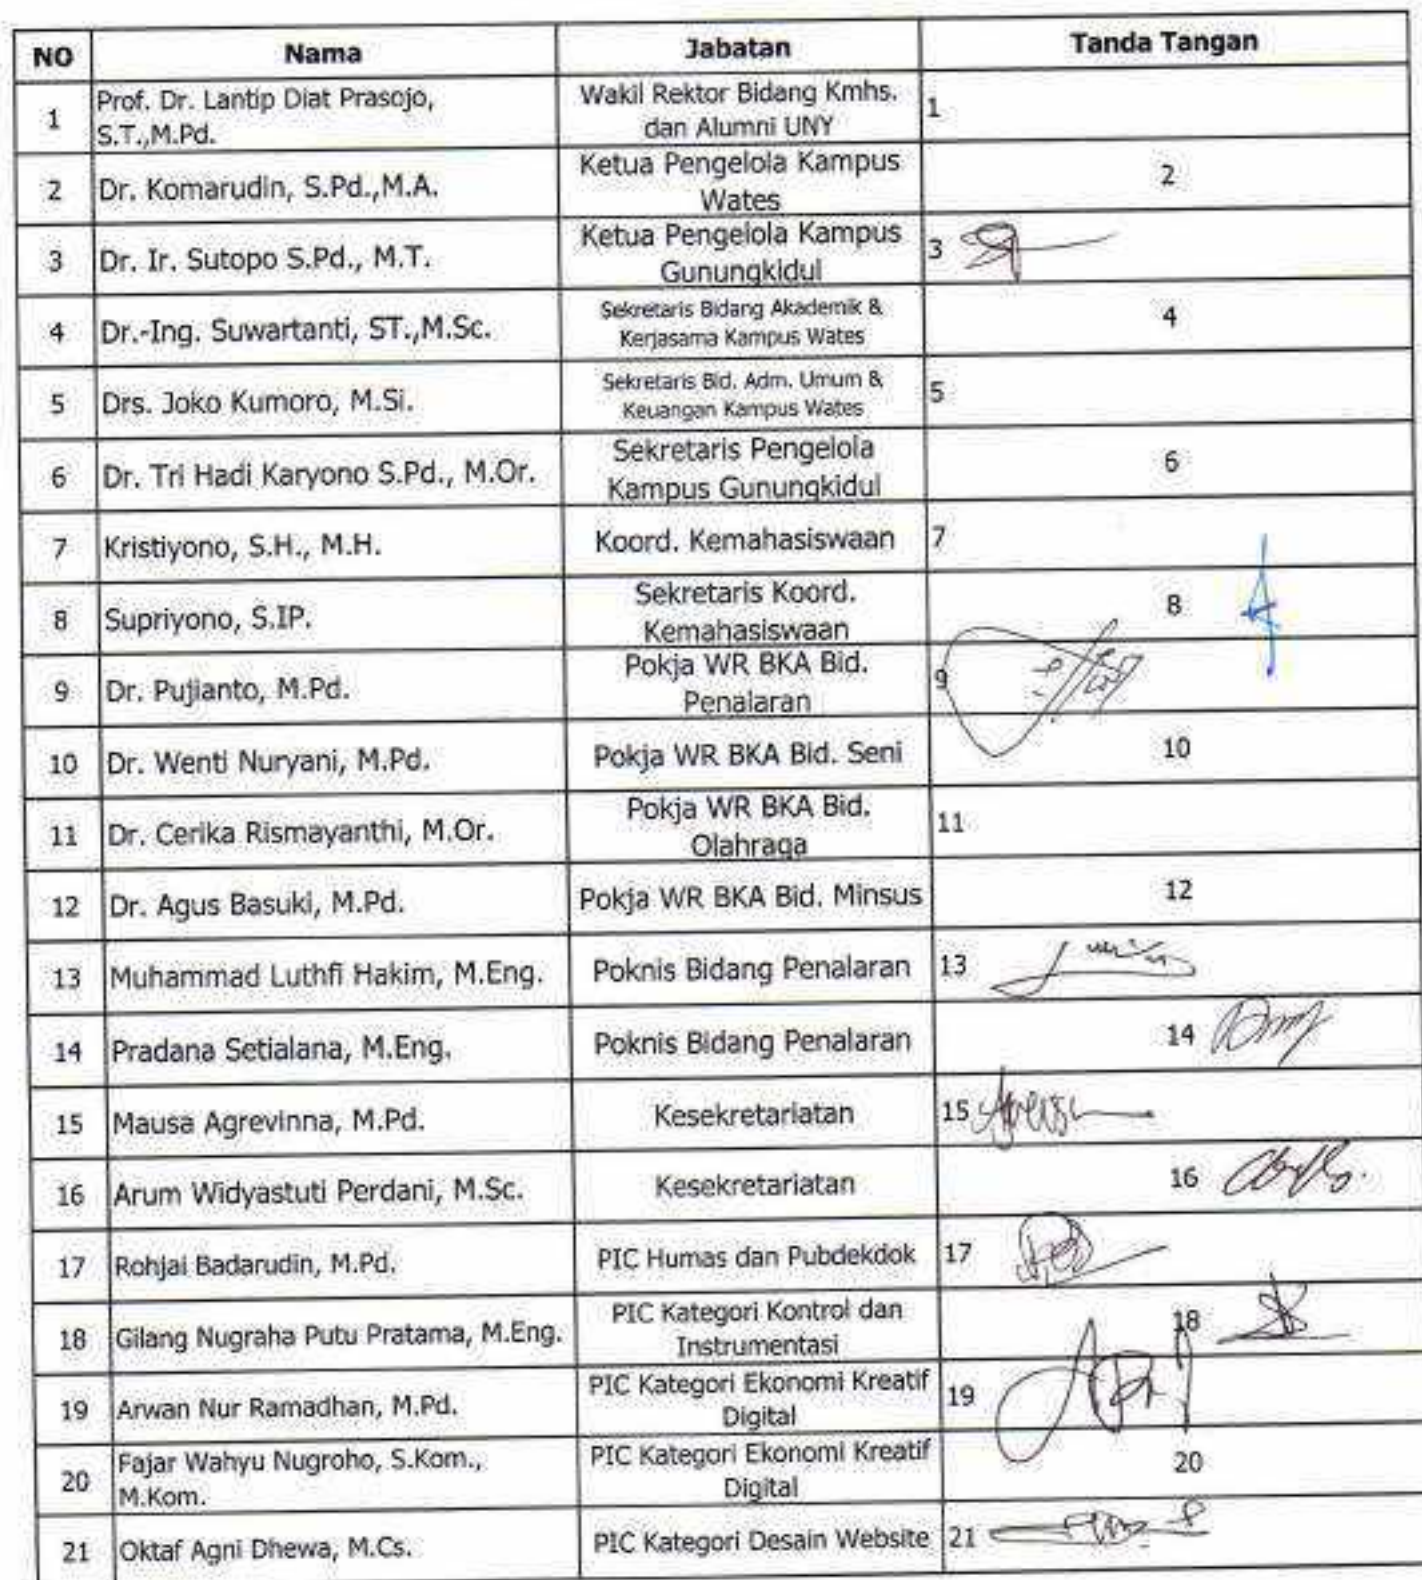 NO Nama Jabatan Tanda Tangan
1 Prof. Dr. Lantip Diat Prasojo, Wakil Rektor Bidang Kmhs. 1
S.T.,M.Pd. dan Alumni UNY
2 Dr. Komarudin, S.Pd.,M.A. Ketua Pengelola Kampus 2
Wates
3 Dr. Ir. Sutopo S.Pd., M.T. Ketua Pengelola Kampus 3
Gunungkidul
4 Dr.-Ing. Suwartanti, ST.,M.Sc. Sekretaris Bidang Akademik & 4
Kerjasama Kampus Wates
5 Drs. Joko Kumoro, M.Si. Sekretaris Bid. Adm. Umum & 5
Keuangan Kampus Wates
6 Dr. Tri Hadi Karyono S.Pd., M.Or. Sekretaris Pengelola 6
Kampus Gunungkidul
7 Kristiyono, S.H., M.H. Koord. Kemahasiswaan 7
8 Supriyono, S.IP. Sekretaris Koord. 8
Kemahasiswaan
9 Dr. Pujianto, M.Pd. Pokja WR BKA Bid. 9
Penalaran
10 Dr. Wenti Nuryani, M.Pd. Pokja WR BKA Bid. Seni 10
11 Dr. Cerika Rismayanthi, M.Or. Pokja WR BKA Bid. 11
Olahraga
12 Dr. Agus Basuki, M.Pd. Pokja WR BKA Bid. Minsus 12
13 Muhammad Luthfi Hakim, M.Eng. Poknis Bidang Penalaran 13
14 Pradana Setialana, M.Eng. Poknis Bidang Penalaran 14
15 Mausa Agrevinna, M.Pd. Kesekretariatan 15
16 Arum Widyastuti Perdani, M.Sc. Kesekretariatan 16
17 Rohjai Badarudin, M.Pd. PIC Humas dan Pubdekdok 17
18 Gilang Nugraha Putu Pratama, M.Eng. PIC Kategori Kontrol dan 18
Instrumentasi
19 Arwan Nur Ramadhan, M.Pd. PIC Kategori Ekonomi Kreatif 19
Digital
20 Fajar Wahyu Nugroho, S.Kom., PIC Kategori Ekonomi Kreatif 20
M.Kom. Digital
21 Oktaf Agni Dhewa, M.Cs. PIC Kategori Desain Website 21